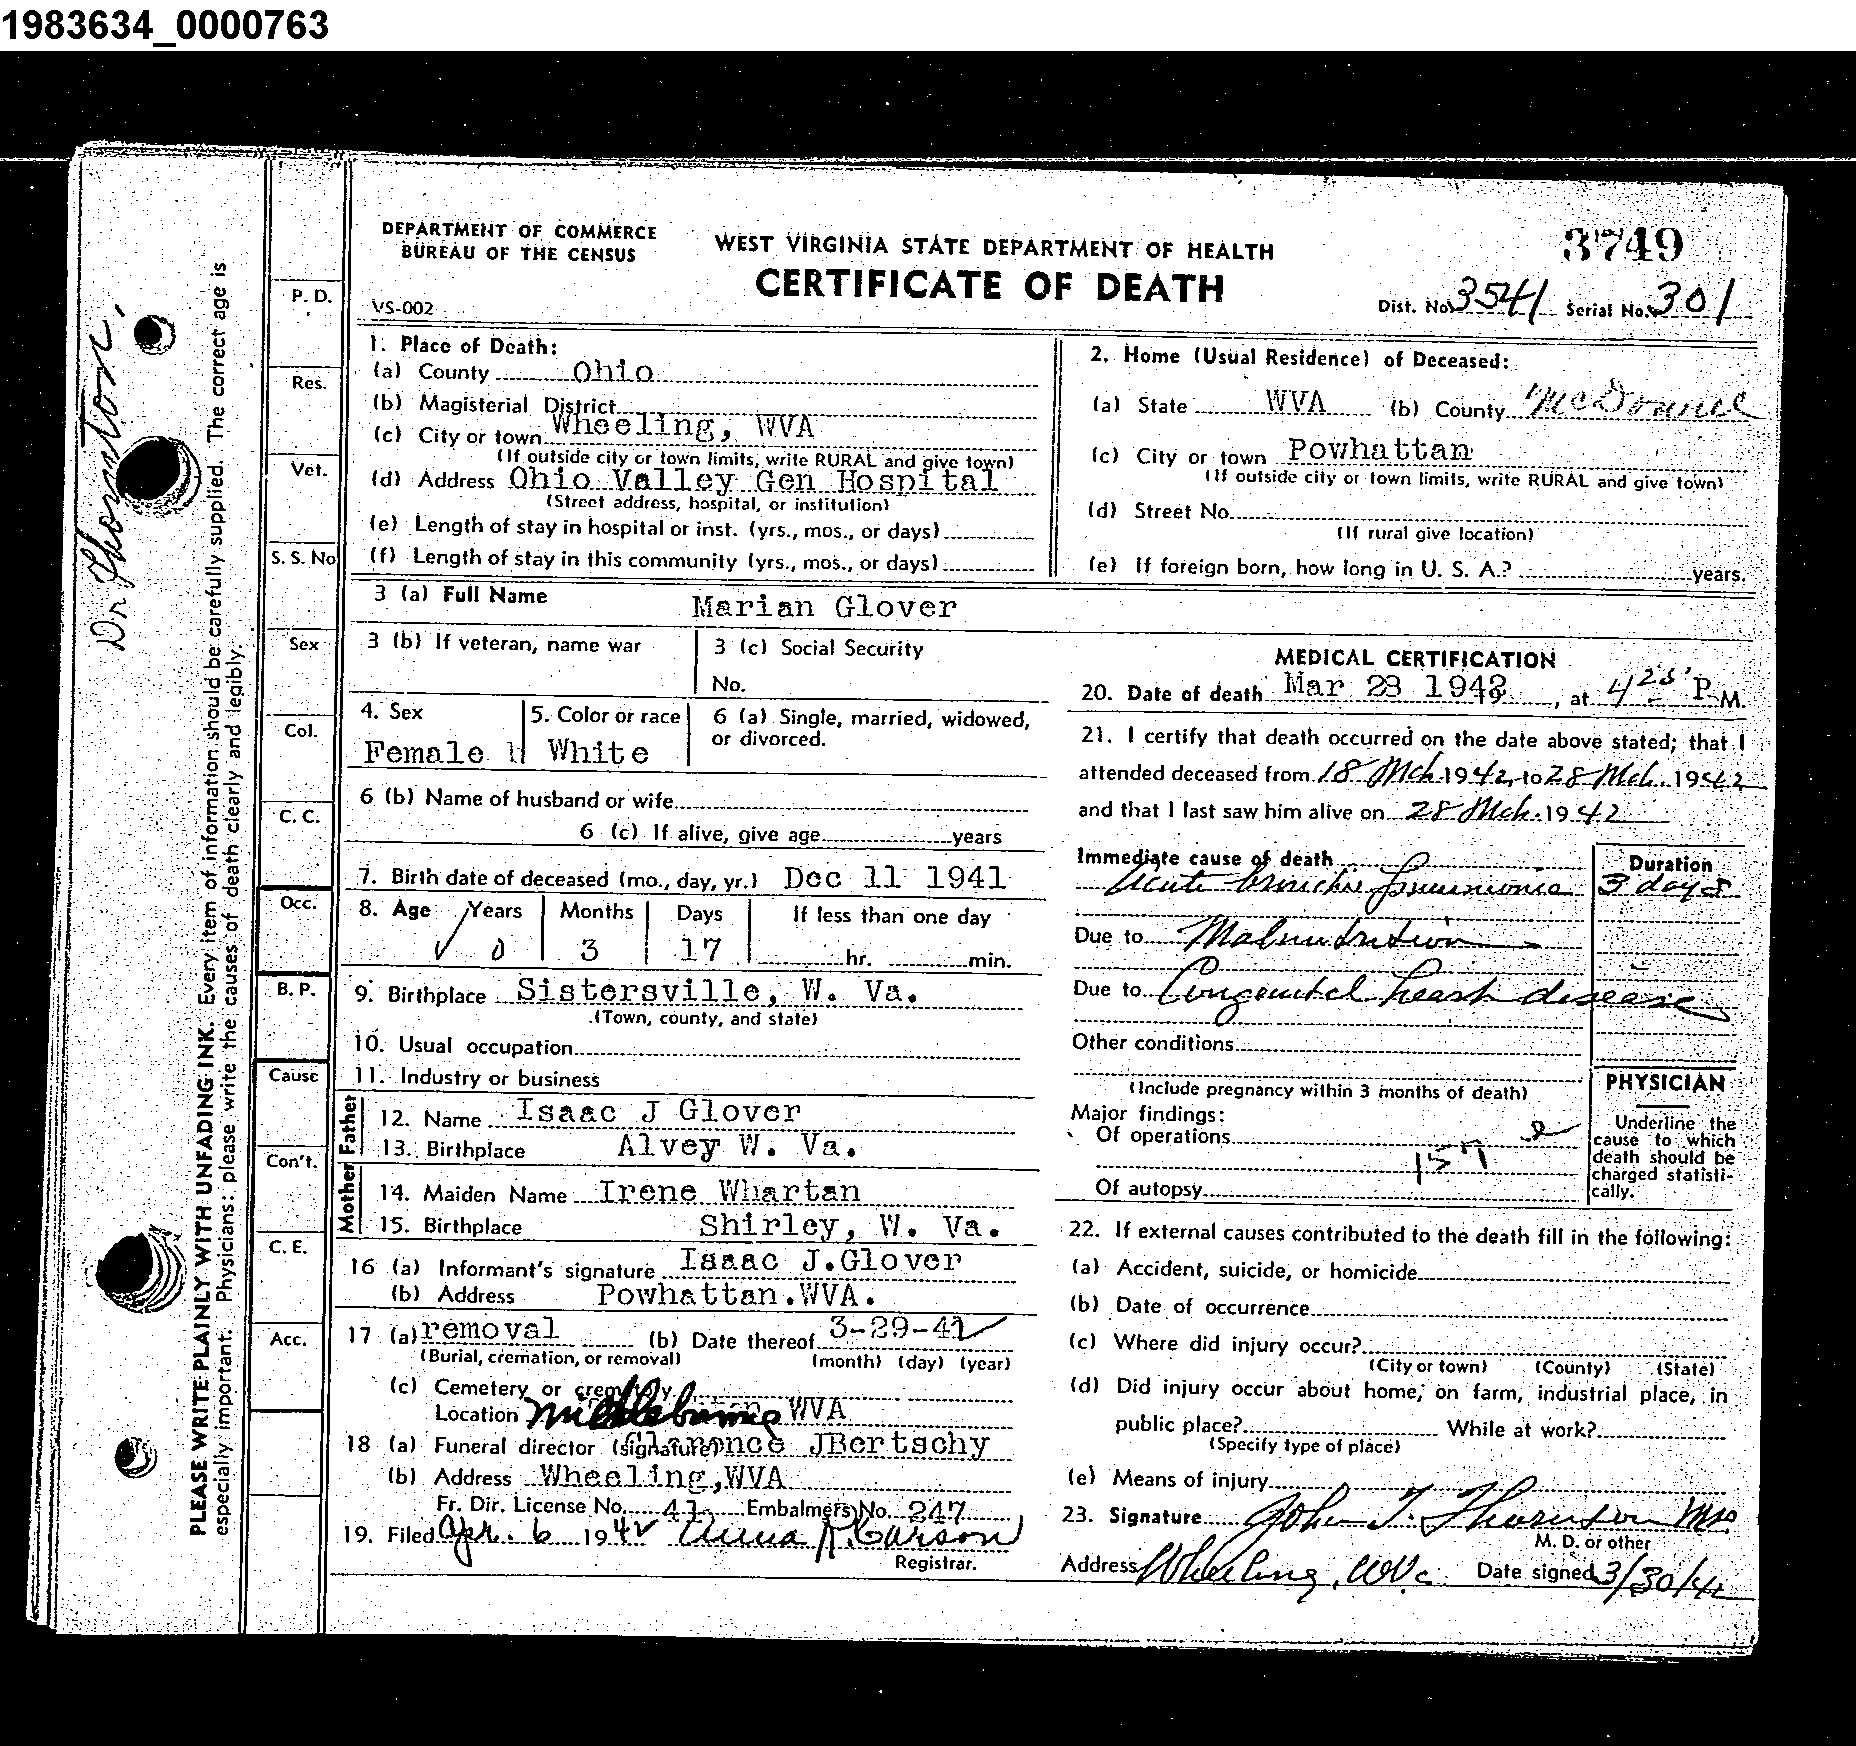 1983634_0000763
DEPARTMENT OF COMMERCE
BUREAU OF THE CENSUS
VS-002
WEST VIRGINIA STATE DEPARTMENT OF HEALTH
CERTIFICATE OF DEATH
3749
Dist. No. 3541 Serial No. 301
1. Place of Death:
(a) County Ohio
(b) Magisterial District
(c) City or town Wheeling, WVA
(If outside city or town limits, write RURAL and give town)
(d) Address Ohio Valley Gen Hospital
(Street address, hospital, or institution)
(e) Length of stay in hospital or inst. (yrs., mos., or days)
(f) Length of stay in this community (yrs., mos., or days)
2. Home (Usual Residence) of Deceased:
(a) State WVA (b) County
(c) City or town Powhattan
(If outside city or town limits, write RURAL and give town)
(d) Street No.
(If rural give location)
(e) If foreign born, how long in U. S. A.? years.
3 (a) Full Name Marian Glover
3 (b) If veteran, name war
3 (c) Social Security
No.
4. Sex
Female
5. Color or race
White
6 (a) Single, married, widowed,
or divorced.
6 (b) Name of husband or wife
6 (c) If alive, give age years
7. Birth date of deceased (mo., day, yr.) Dec 11 1941
8. Age Years Months Days If less than one day
0 3 17 hr. min.
9. Birthplace Sistersville, W. Va.
(Town, county, and state)
10. Usual occupation
11. Industry or business
Father
12. Name Isaac J Glover
13. Birthplace Alvey W. Va.
Mother
14. Maiden Name Irene Whartan
15. Birthplace Shirley, W. Va.
16 (a) Informant's signature Isaac J.Glover
(b) Address Powhattan.WVA.
17 (a) removal (b) Date thereof 3-29-42
(Burial, cremation, or removal) (month) (day) (year)
(c) Cemetery or crematory
Location Middlebourne WVA
18 (a) Funeral director (signature) Clarence JBertschy
(b) Address Wheeling,WVA
Fr. Dir. License No. 41 Embalmers No. 247
19. Filed Apr. 6 1942 Anna R. Carson
Registrar.
MEDICAL CERTIFICATION
20. Date of death Mar 28 1942, at 4 25 P. M.
21. I certify that death occurred on the date above stated; that I
attended deceased from 18 Mch. 1942 to 28 Mch. 1942
and that I last saw him alive on 28 Mch. 1942
Immediate cause of death
Duration
Acute bronchio pneumonia 3 days
Due to Malnutrition
Due to Congenital heart disease
Other conditions
(Include pregnancy within 3 months of death)
Major findings:
Of operations
157
Of autopsy
PHYSICIAN
Underline the
cause to which
death should be
charged statisti-
cally.
22. If external causes contributed to the death fill in the following:
(a) Accident, suicide, or homicide
(b) Date of occurrence
(c) Where did injury occur?
(City or town) (County) (State)
(d) Did injury occur about home, on farm, industrial place, in
public place? While at work?
(Specify type of place)
(e) Means of injury
23. Signature John T. Thornton
M. D. or other
Address Wheeling, W.Va. Date signed 3/30/42
P. D.
Res.
Vet.
S. S. No
Sex
Col.
C. C.
Occ.
B. P.
Cause
Con't.
C. E.
Acc.
Dr Thornton.
PLEASE WRITE PLAINLY WITH UNFADING INK. Every item of information should be carefully supplied. The correct age is
especially important. Physicians: please write the causes of death clearly and legibly.